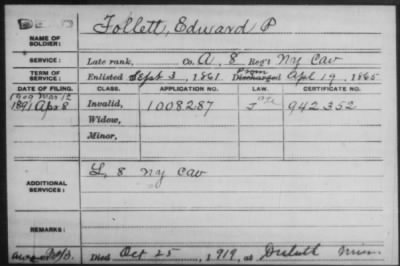 NAME OF SOLDIER: Follett, Edward P
SERVICE: Late rank, Co. A, 8 Reg't Ny Cav
TERM OF SERVICE: Enlisted Sept 3, 1861 From Discharged Apl 19, 1865
DATE OF FILING. CLASS. APPLICATION NO. LAW. CERTIFICATE NO.
1909 Mar 12
1891 Apr 8 Invalid, 1008287 942352
Widow,
Minor,
ADDITIONAL SERVICES: L, 8 Ny Cav
REMARKS:
Died Oct 25, 1919, at Duluth Minn.